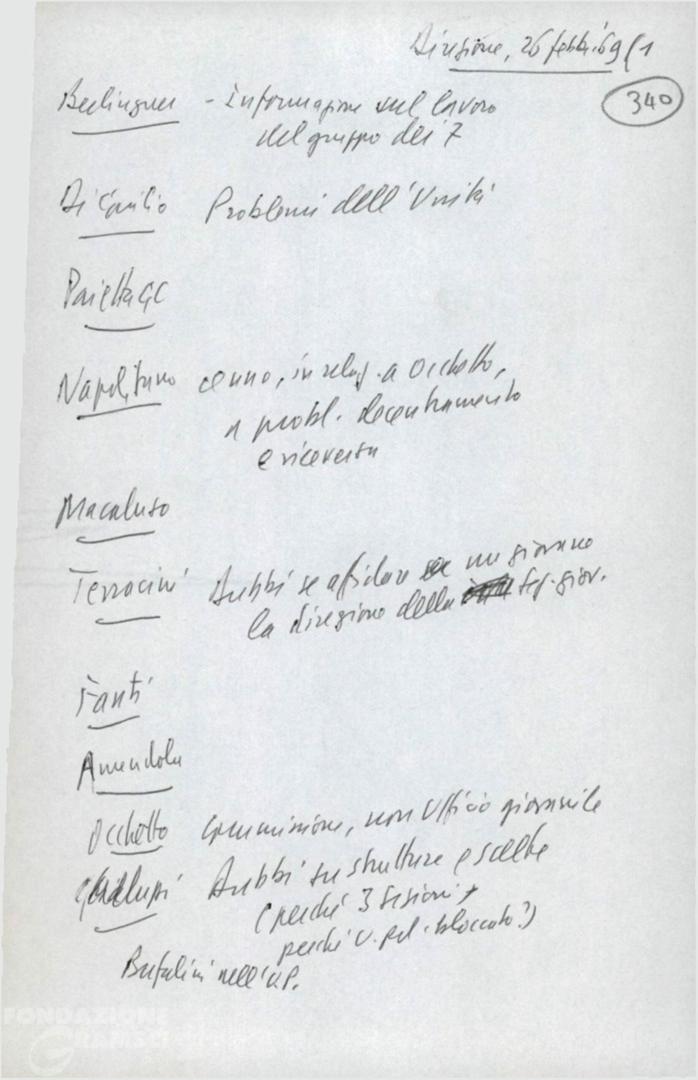 Direzione, 26 febbr. 69 (1
340
Berlinguer - Informazione sul lavoro
del gruppo dei 7
Di Giulio Problemi dell'Unità
Pajetta GC
Napolitano cenno, in relaz. a Occhetto,
a probl. decentramento
e viceversa
Macaluso
Terracini Dubbi se affidare a un giovane
la direzione della sez. giov.
Fanti
Amendola
Occhetto commissione, non Ufficio giovanile
Galluzzi Dubbi su strutture e scelte
(perché 3 sezioni +
perché U. pol. bloccato?)
Bufalini nell'U.P.
FONDAZIONE
GRAMSCI